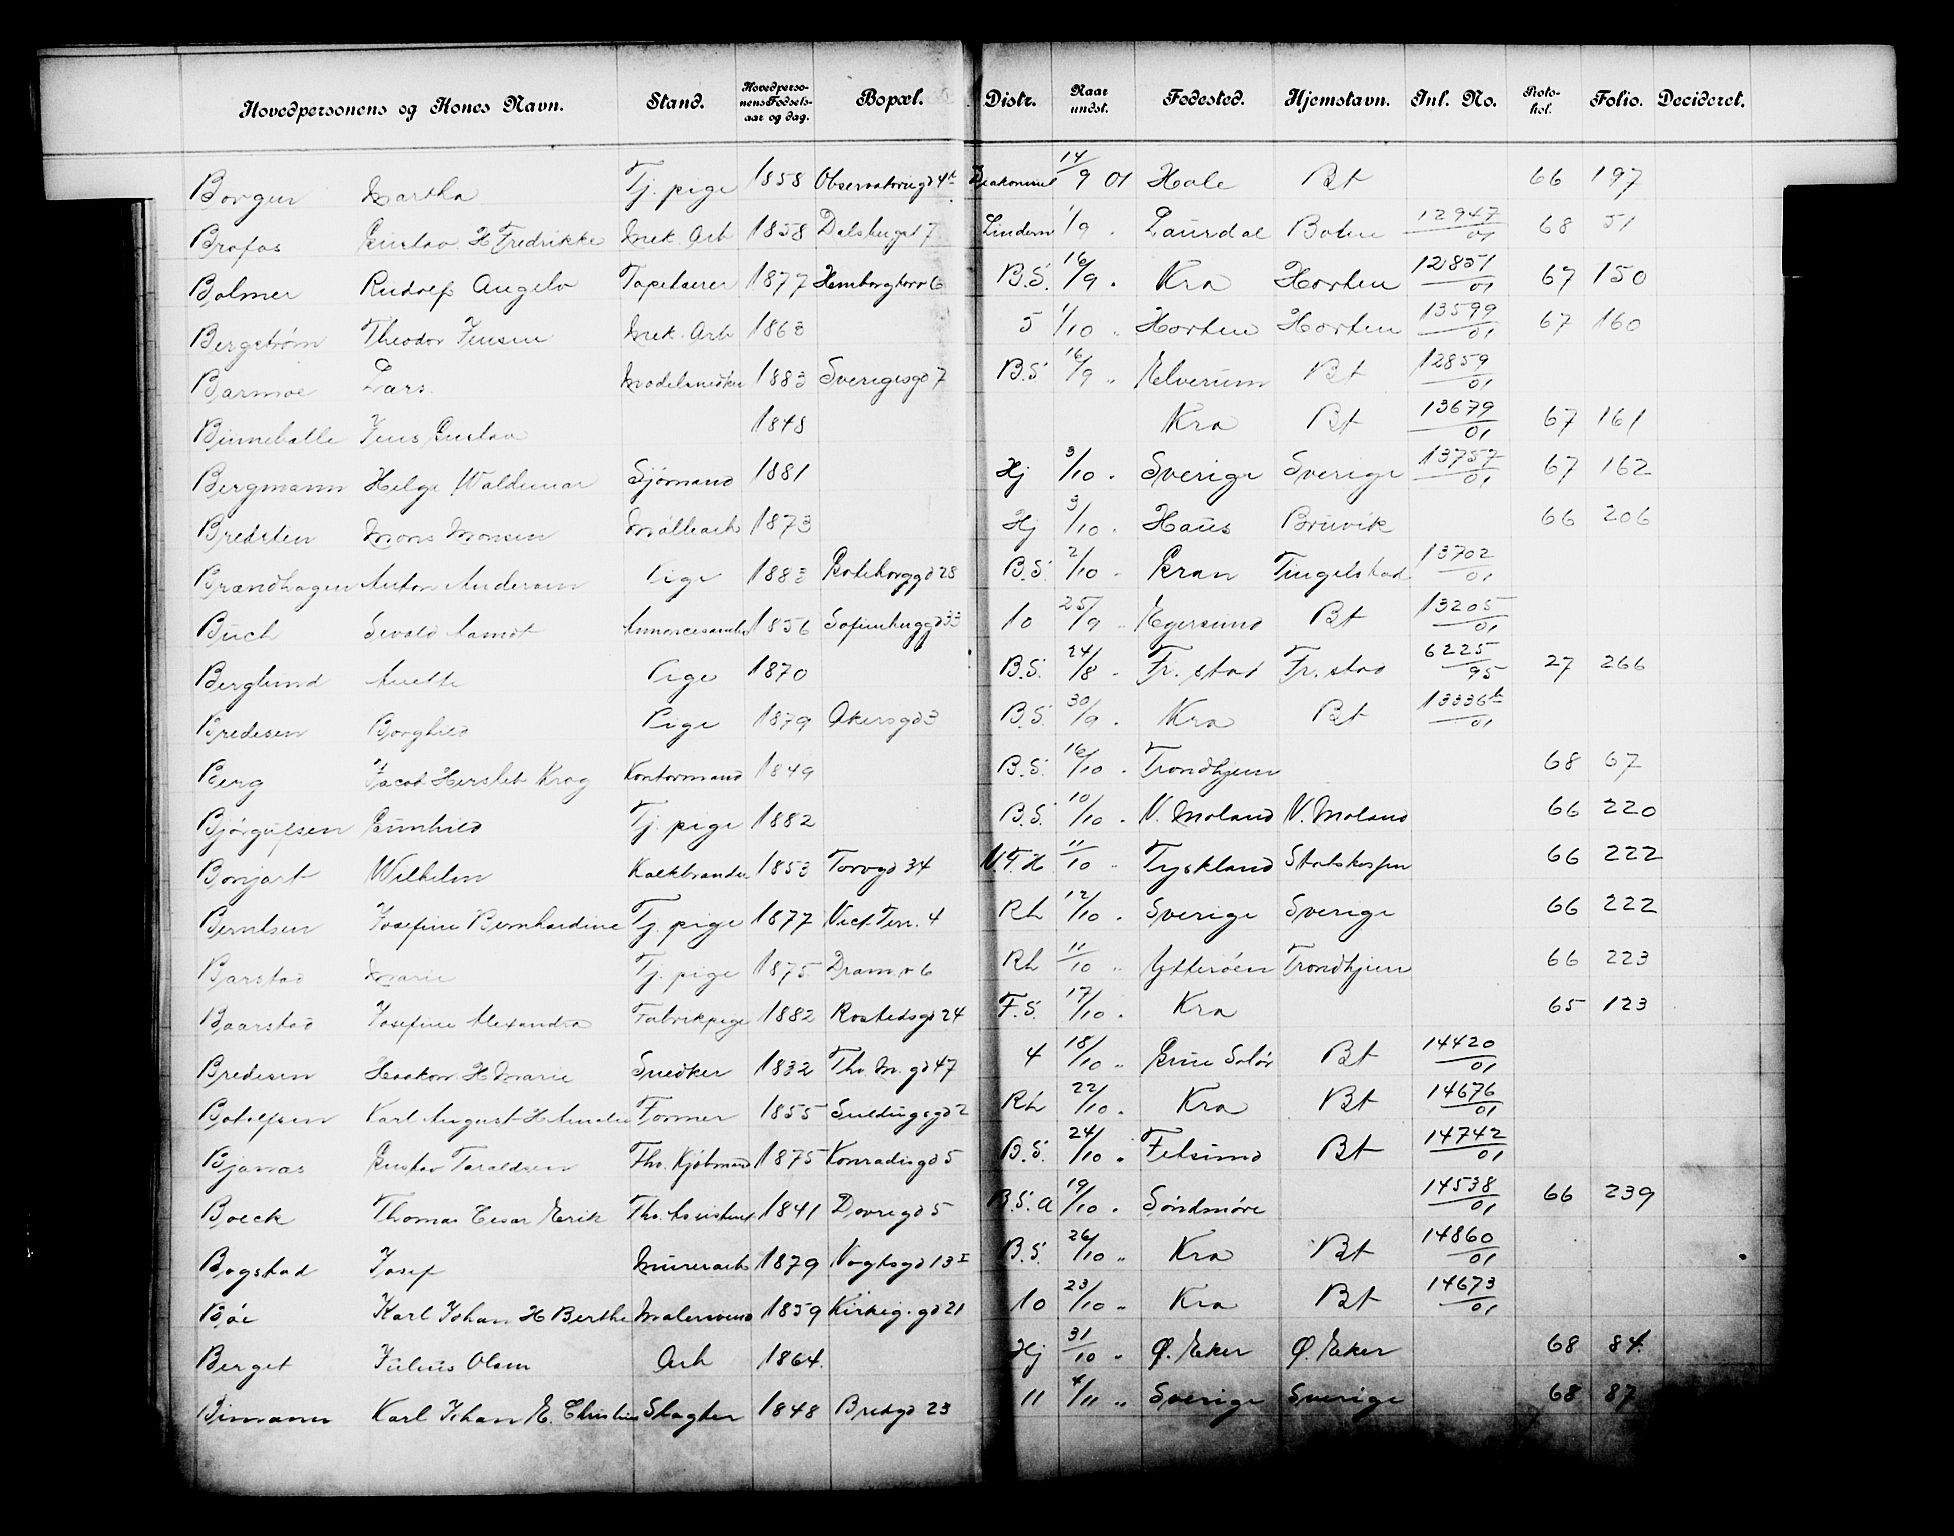 Hovedpersonens og Kones Navn. Stand. Hovedpersonens Fødselsaar og dag. Bopæl. Distr. Naar undst. Fødested. Hjemstavn. Inl. No. Protokol. Folio. Decideret.
Borgen Martha Tj. pige 1858 Observatoriegd 4 14/9 01 Hole Bt 66 197
Brofos Gustav H Fredrikke Mek. Arb 1858 Dalsberget 7 Lindern 1/9 " Laurdal Bt 12947/01 68 51
Bolmer Rudolf Angelo Tapetserer 1877 6 B.S. 16/9 " Kra Horten 12851/01 67 150
Bergstrøm Theodor Jensen Mek. Arb 1863 5 1/10 " Horten Horten 13599/01 67 160
Barmoe Lars Modelsnedker 1883 Sverigesgd 7 B.S. 16/9 " Elverum Bt 12859/01
Binneballe Jens Gustav 1848 Kra Bt 13679/01 67 161
Bergmann Helge Waldemar Sjømand 1881 Hj 3/10 " Sverige Sverige 13757/01 67 162
Bredsten Mons Monsen 1873 Hj 3/10 " Haus Bruvik 66 206
Brændhagen Anton Andersen Pige 1883 Gøteborggd 28 B.S. 2/10 " Gran Tingelstad 13702/01
Buch Sevald Aamot Annoncesamler 1856 Sofienberggd 33 10 25/9 " Egersund Bt 13205/01
Berglund Anette Pige 1870 B.S. 24/8 " Fr. stad Fr. stad 6225/95 27 266
Bredesen Borghild Pige 1879 Akersgd 3 B.S. 30/9 " Kra Bt 13336 b/01
Berg Jacob Hersleb Krog Kontormand 1849 B.S. 16/10 " Trondhjem 68 67
Bjørgulfsen Gunhild Tj. pige 1882 B.S. 10/10 " V. Moland V. Moland 66 220
Bonjart Wilhelm Kalkbrander 1853 Torvgd 34 V.F.H. 11/10 " Tyskland Statskassen 66 222
Berntsen Josefine Bernhardine Tj. pige 1877 Vict. Terr. 4 Rh 12/10 " Sverige Sverige 66 222
Barstad Marie Tj. pige 1875 Dram. v 6 Rh 11/10 " Ytterøen Trondhjem 66 223
Baarstad Josefine Alexandra Fabrikpige 1882 Rostedsgd 24 F.S. 17/10 " Kra 65 123
Bredesen Haakon H Marie Snedker 1832 Th. M. gd 47 4 18/10 " Grue Solør Bt 14420/01
Botolfsen Karl August H Amalie Former 1855 Suldugsgd 2 Rh 22/10 " Kra Bt 14676/01
Bjanas Gustav Taraldsen Fhv. Kjøbmand 1875 Konradisgd 5 B.S. 24/10 " Fetsund Bt 14742/01
Boeck Thomas Cesar Erik Fhv. Assistent 1841 Dovregd 5 B.S. A 19/10 " Søndmøre 14538/01 66 239
Bogstad Josef Murerarb 1879 Vogtsgd 13 I B.S. 26/10 " Kra Bt 14860/01
Bøe Karl Johan H Berthe Malersvend 1859 Kirkeg. gd 21 10 23/10 " Kra Bt 14673/01
Berget Julius Olsen Arb 1864. Hj 31/10 " Ø. Eker Ø. Eker 68 84
Bimann Karl Johan E. Christine Slagter 1848 Bredgd 23 11 4/11 " Sverige Sverige 68 87